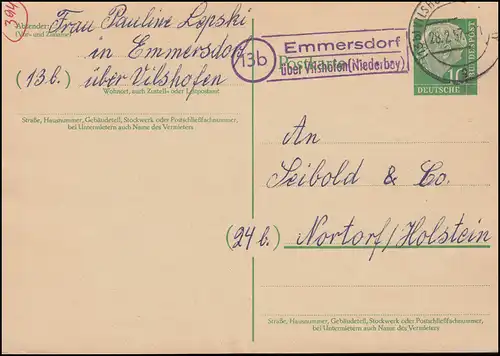 394
Absender: Frau Pauline Lepski
(Vor- und Zuname)
in Emmersdorf
(13b.) über Vilshofen
Wohnort, auch Zustell- oder Leitpostamt
Straße, Hausnummer, Gebäudeteil, Stockwerk oder Postschließfachnummer,
bei Untermietern auch Name des Vermieters
13b
Emmersdorf
über Vilshofen (Niederbay)
Postkarte
VILSHO
28.2.57
10
DEUTSCHE
BUNDESPOST
An
Seibold & Co.
(24 b.) Nortorf/Holstein
Straße, Hausnummer, Gebäudeteil, Stockwerk oder Postschließfachnummer,
bei Untermietern auch Name des Vermieters